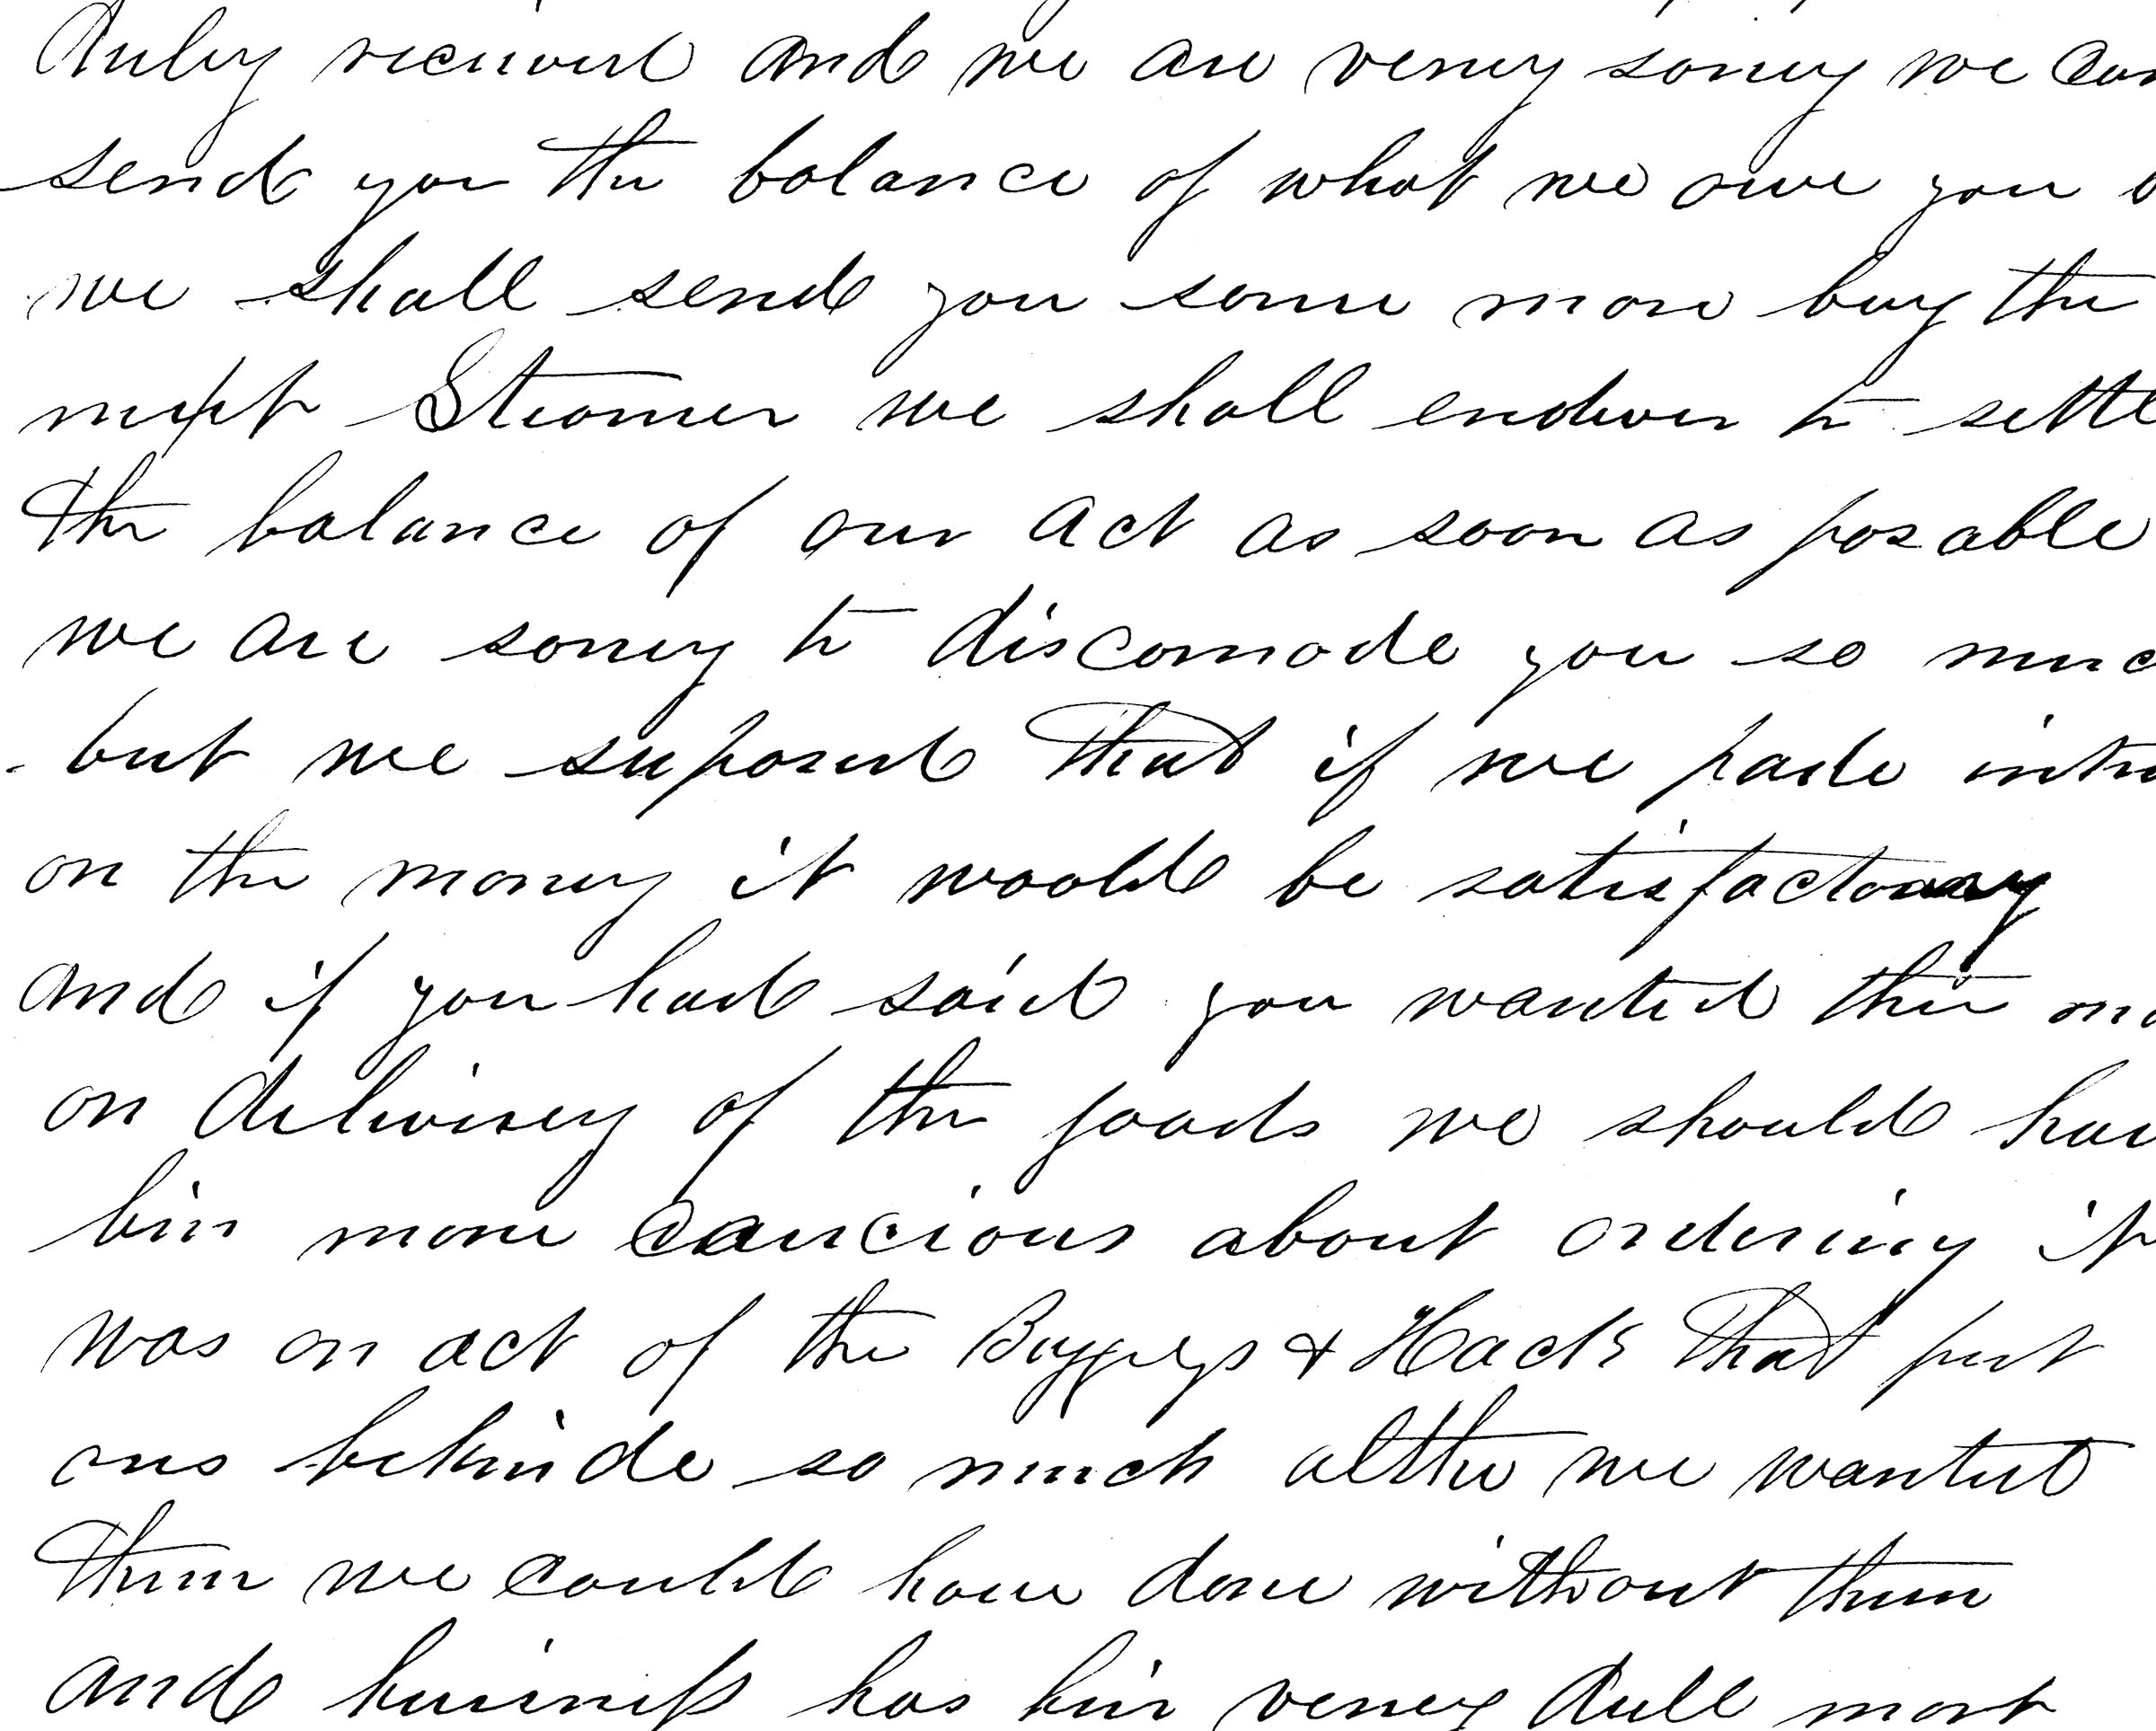 Duley recieved and we are verey sorrey we can
send you the balance of what we owe you
we shall send you some more buy the
next Steamer we shall endever to settle
the balance of our act as soon as posable
we are sorrey to discomode you so muc
but we suposed that if we pade intre
on the money it woold be satisfactory
and if you had said you wanted the mo
on deliverey of the goods we should hav
bin more caucious about ordering it
was on act of the Buggeys & Hack that put
ous behinde so much altho we wanted
them we could have done without them
and business has bin verey dull most